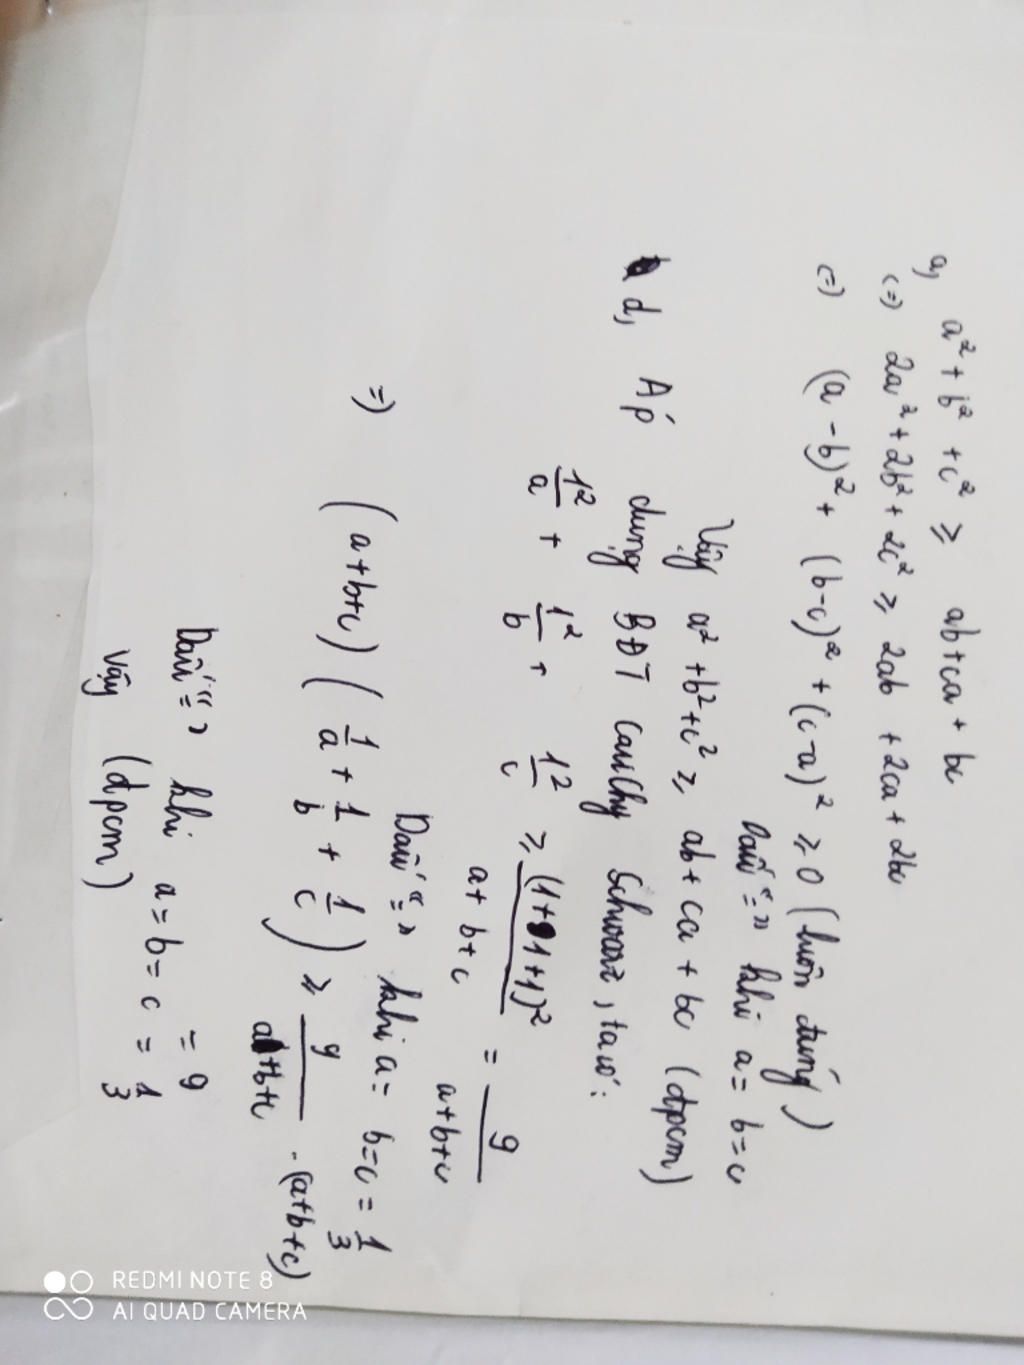 a, a² + b² + c² ≥ ab + ca + bc
(=) 2a² + 2b² + 2c² ≥ 2ab + 2ca + 2bc
(=) (a - b)² + (b-c)² + (c-a)² ≥ 0 (luôn đúng)
Dấu "=" khi a = b = c
Vậy a² + b² + c² ≥ ab + ca + bc (đpcm)
d, Áp dụng BĐT Cauchy Schwarz, ta có:
1²/a + 1²/b + 1²/c ≥ (1+1+1)²/a+b+c = 9/a+b+c
Dấu "=" khi a = b = c = 1/3
=) (a+b+c) (1/a + 1/b + 1/c) ≥ 9/a+b+c . (a+b+c)
= 9
Dấu "=" khi a = b = c = 1/3
Vậy (đpcm)
REDMI NOTE 8
AI QUAD CAMERA